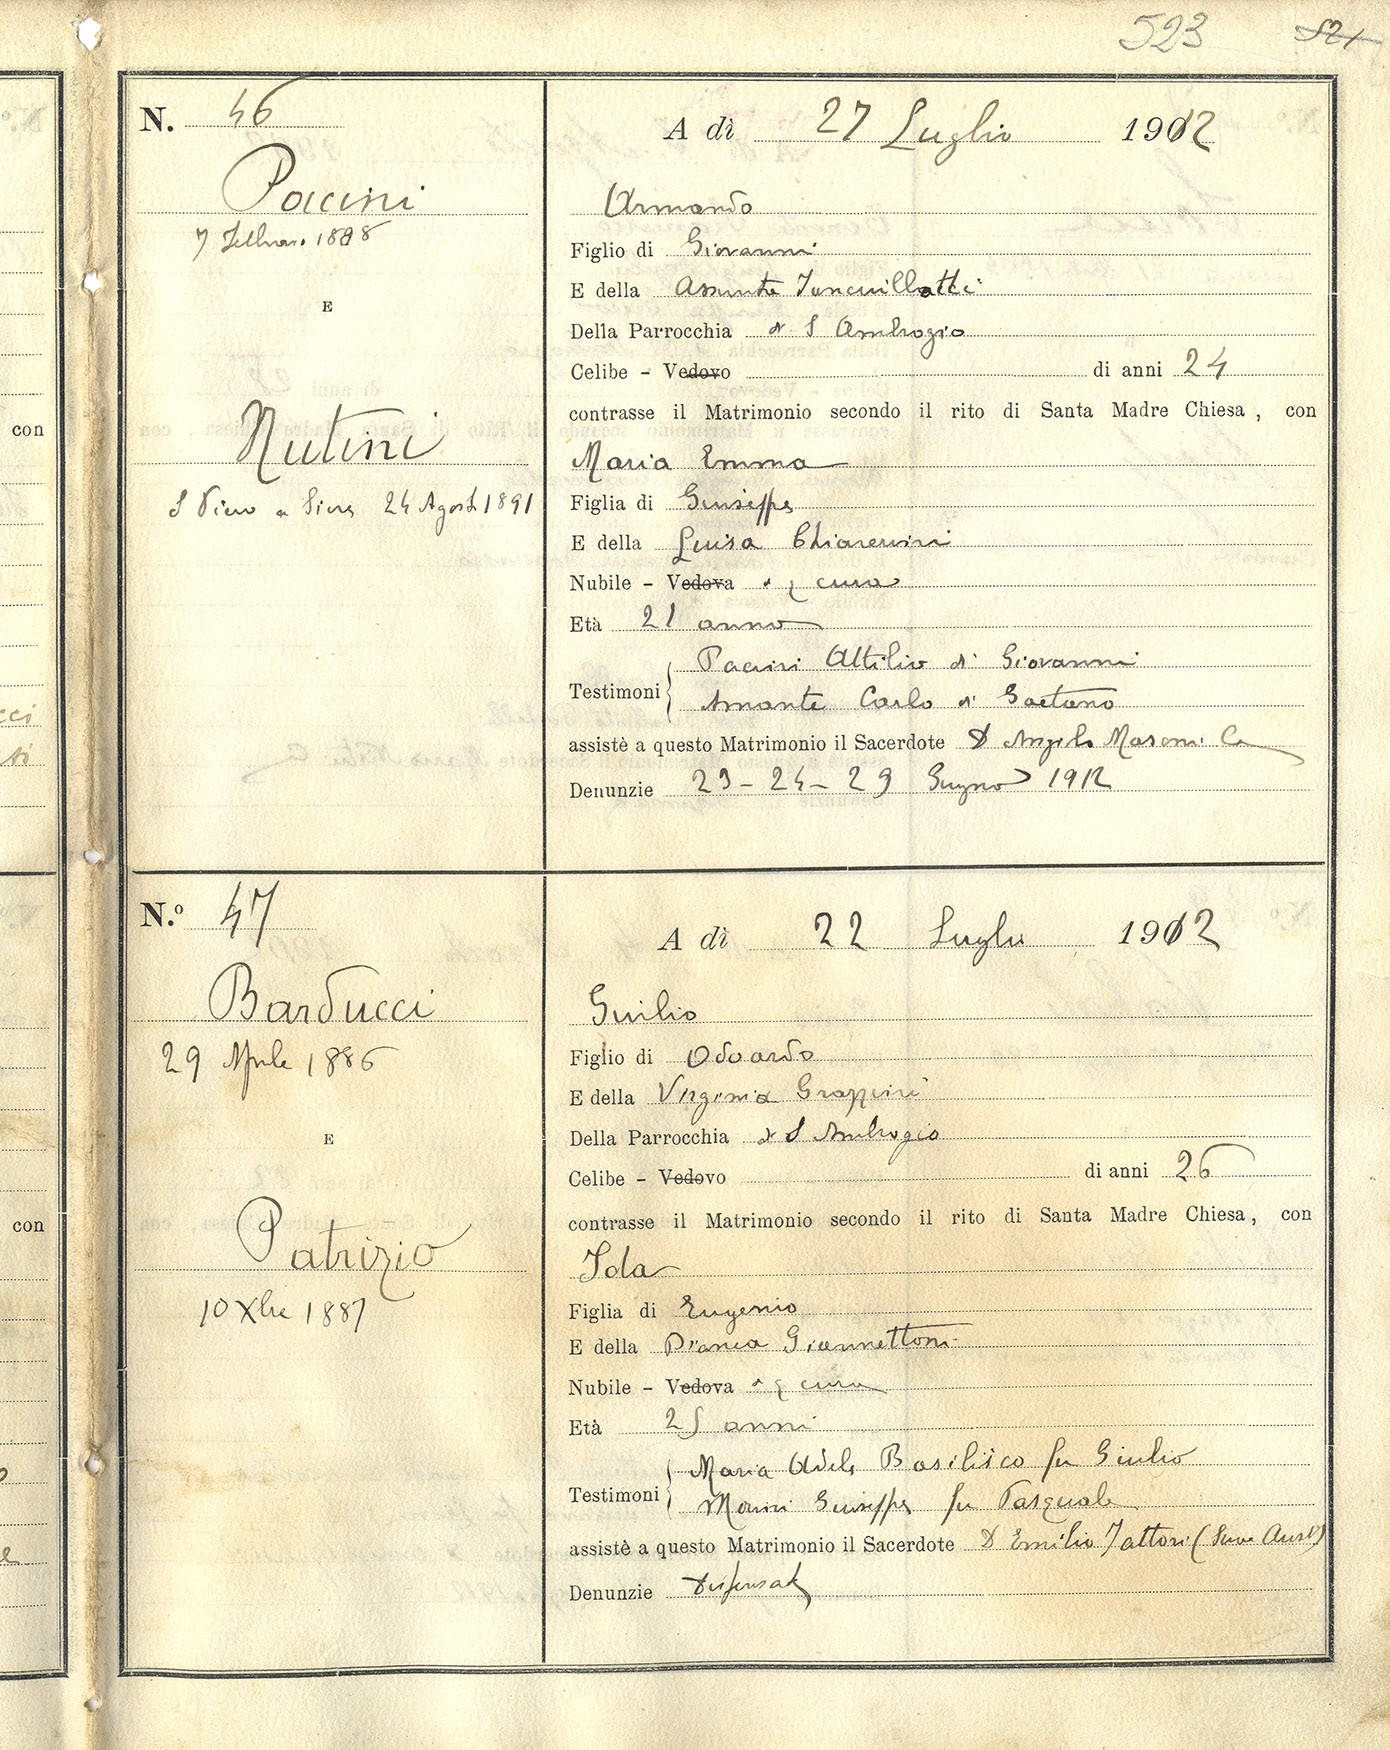 523 521
N. 46
Pacini
7 Febbraio 1888
E
Nutini
S Piero a Sieve 24 Agosto 1891
A dì 27 Luglio 1912
Armando
Figlio di Giovanni
E della Assunta
Della Parrocchia di S Ambrogio
Celibe - Vedovo di anni 24
contrasse il Matrimonio secondo il rito di Santa Madre Chiesa, con
Maria Emma
Figlia di Giuseppe
E della Luisa
Nubile - Vedova di q cura
Età 21 anno
Testimoni Pacini Attilio di Giovanni
Amante Carlo di Gaetano
assistè a questo Matrimonio il Sacerdote D Angelo
Denunzie 23 - 24 - 29 Giugno 1912
N.º 47
Barducci
29 Aprile 1886
E
Patrizio
10 Xbre 1887
A dì 22 Luglio 1912
Giulio
Figlio di Odoardo
E della Virginia Grazzini
Della Parrocchia di S Ambrogio
Celibe - Vedovo di anni 26
contrasse il Matrimonio secondo il rito di Santa Madre Chiesa, con
Ida
Figlia di Eugenio
E della Bianca Giannettoni
Nubile - Vedova di q cura
Età 25 anni
Testimoni Maria Adele Basilisco fu Giulio
Giuseppe fu Pasquale
assistè a questo Matrimonio il Sacerdote D Emilio Fattori
Denunzie Dispensati
con
con